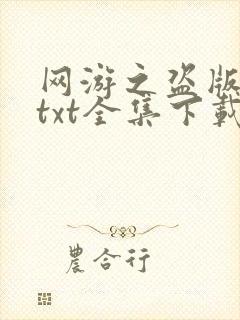 网游之盗版
txt全集下载
農合行